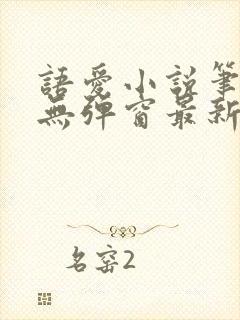 語愛小說筆
無彈窗最新
名窑2